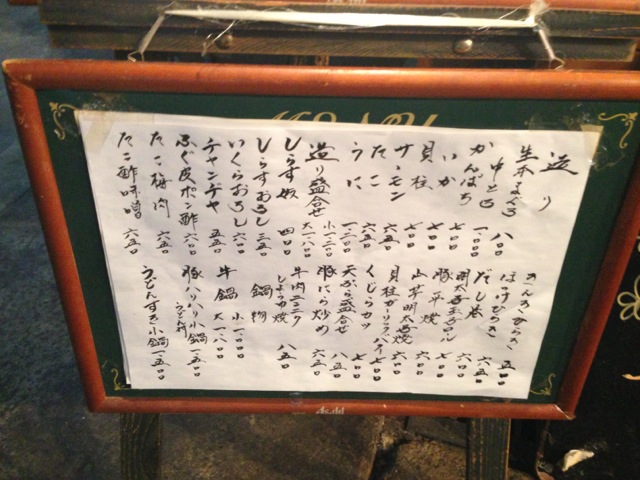 造り
生本まぐろ 八〇〇
中とろ 一、〇〇〇
かんぱち 七〇〇
いか 七〇〇
貝柱 七〇〇
サーモン 六五〇
たこ 六五〇
うに 一、二〇〇
造り盛合せ 小一、二〇〇 大一、八〇〇
しらす奴 四〇〇
しらすおろし 三五〇
いくらおろし 六〇〇
チャンヂャ 五五〇
ふぐ皮ポン酢 六五〇
たこ梅肉 六五〇
たこ酢味噌 六五〇
ほっけひらき 五五〇
だし巻 六五〇
明太子玉子ロール 七〇〇
豚平焼 六〇〇
山芋明太子焼 六〇〇
貝柱ガーリックバター 七〇〇
くじらカツ 七〇〇
天ぷら盛合せ 八五〇
豚にら炒め 六五〇
牛肉ニンニクしょうゆ焼 八五〇
鍋物
牛鍋 小一、〇〇〇 大一、八〇〇
豚ハリハリ小鍋 一五〇〇
うどんすき小鍋 一五〇〇
Asahi